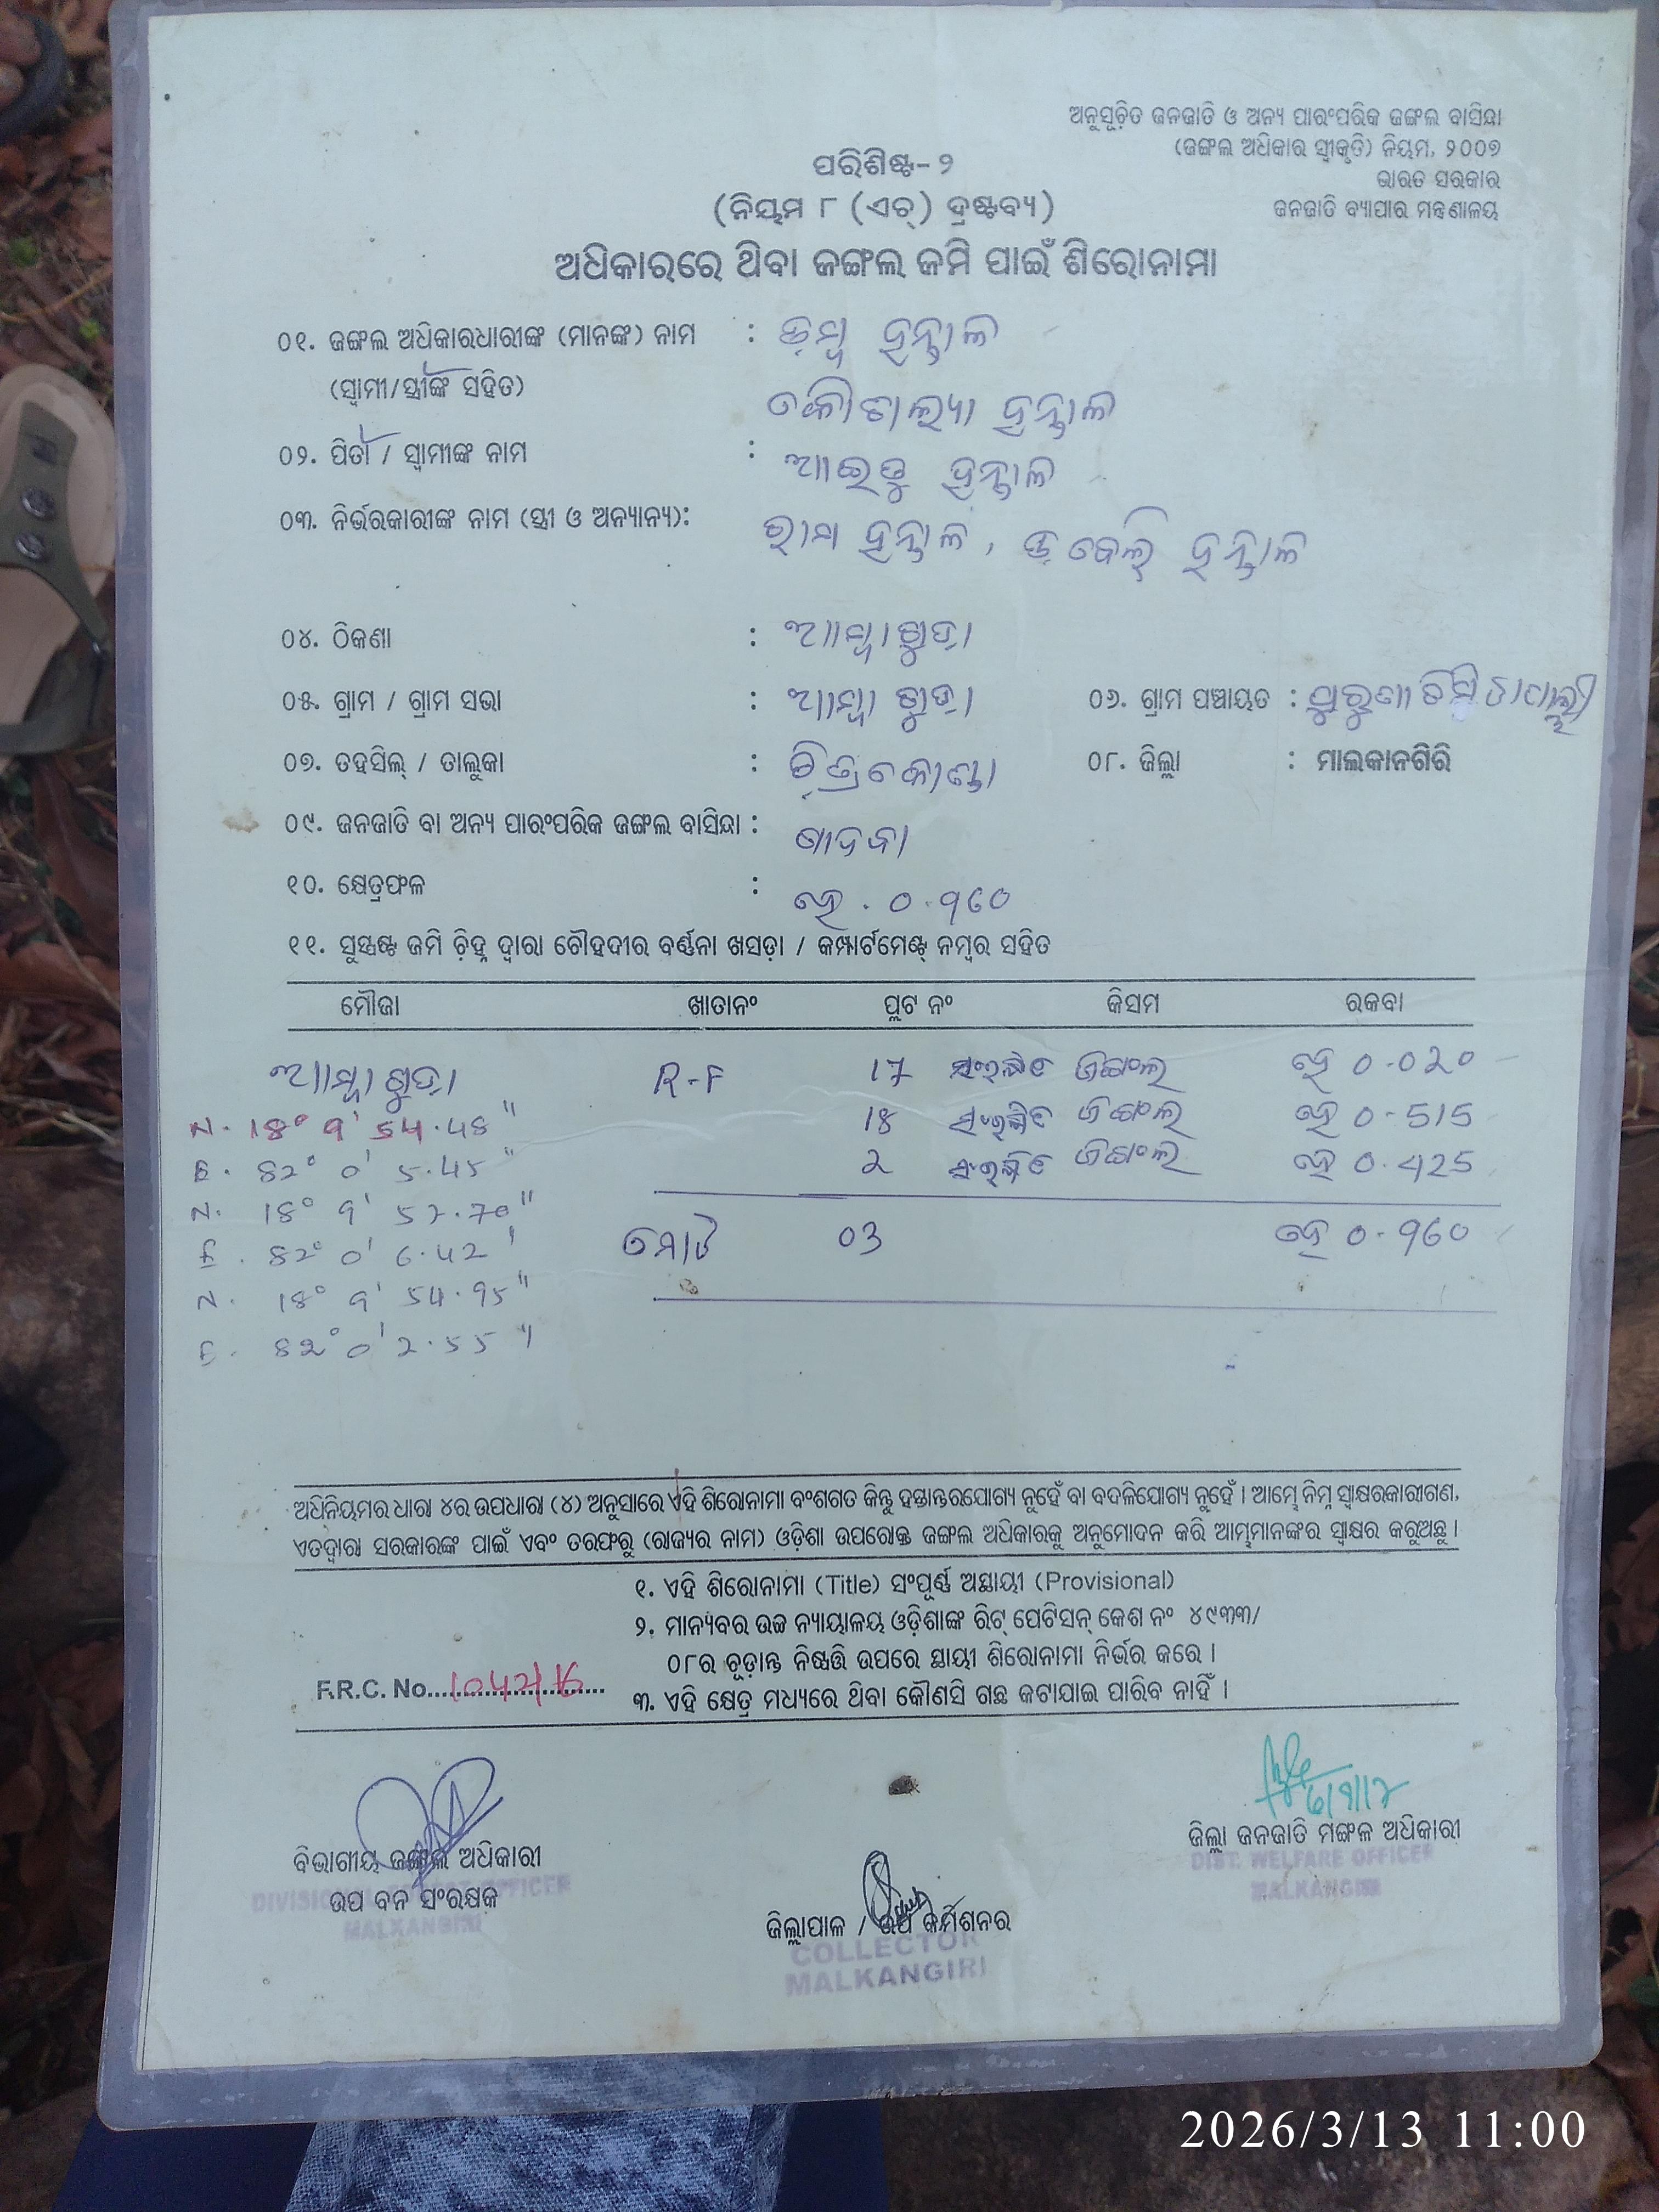 ଅନୁସୂଚିତ ଜନଜାତି ଓ ଅନ୍ୟ ପାରଂପରିକ ଜଙ୍ଗଲ ବାସିନ୍ଦା
(ଜଙ୍ଗଲ ଅଧିକାର ସ୍ୱୀକୃତି) ନିୟମ, ୨୦୦୭
ଭାରତ ସରକାର
ଜନଜାତି ବ୍ୟାପାର ମନ୍ତ୍ରଣାଳୟ
ପରିଶିଷ୍ଟ- ୨
(ନିୟମ ୮ (ଏଚ୍) ଦ୍ରଷ୍ଟବ୍ୟ)
ଅଧିକାରରେ ଥିବା ଜଙ୍ଗଲ ଜମି ପାଇଁ ଶିରୋନାମା
୦୧. ଜଙ୍ଗଲ ଅଧିକାରଧାରୀଙ୍କ (ମାନଙ୍କ) ନାମ : ଡମ୍ବୁ ହନ୍ତାଳ
(ସ୍ୱାମୀ/ସ୍ତ୍ରୀଙ୍କ ସହିତ) କୌଶଲ୍ୟା ହନ୍ତାଳ
୦୨. ପିତା / ସ୍ୱାମୀଙ୍କ ନାମ : ଆଇତୁ ହନ୍ତାଳ
୦୩. ନିର୍ଭରକାରୀଙ୍କ ନାମ (ସ୍ତ୍ରୀ ଓ ଅନ୍ୟାନ୍ୟ): ହନ୍ତାଳ , ହନ୍ତାଳ
୦୪. ଠିକଣା : ଆମ୍ବାଗୁଡ଼ା
୦୫. ଗ୍ରାମ / ଗ୍ରାମ ସଭା : ଆମ୍ବାଗୁଡ଼ା ୦୬. ଗ୍ରାମ ପଞ୍ଚାୟତ :
୦୭. ତହସିଲ୍ / ତାଲୁକା : ଚିତ୍ରକୋଣ୍ଡା ୦୮. ଜିଲ୍ଲା : ମାଲକାନଗିରି
୦୯. ଜନଜାତି ବା ଅନ୍ୟ ପାରଂପରିକ ଜଙ୍ଗଲ ବାସିନ୍ଦା : ଗାଦବା
୧୦. କ୍ଷେତ୍ରଫଳ : ହେ. ୦.୨୬୦
୧୧. ସୁସ୍ପଷ୍ଟ ଜମି ଚିହ୍ନ ଦ୍ୱାରା ଚୌହଦୀର ବର୍ଣ୍ଣନା ଖସଡ଼ା / କମ୍ପାର୍ଟମେଣ୍ଟ୍ ନମ୍ବର ସହିତ
ମୌଜା ଖାତାନଂ ପ୍ଲଟ ନଂ କିସମ ରକବା
ଆମ୍ବାଗୁଡ଼ା R-F 17 ସଂରକ୍ଷିତ ଜଙ୍ଗଲ ହେ 0.020
N. 18° 9' 54.48" 18 ସଂରକ୍ଷିତ ଜଙ୍ଗଲ ହେ 0-515
E. 82° 0' 5.45" 2 ସଂରକ୍ଷିତ ଜଙ୍ଗଲ ହେ 0.425
N. 18° 9' 57.70"
E. 82° 0' 6.42' ମୋଟ 03 ହେ 0.960
N. 18° 9' 54.95"
E. 82° 0' 2.55"
ଅଧିନିୟମର ଧାରା ୪ର ଉପଧାରା (୪) ଅନୁସାରେ ଏହି ଶିରୋନାମା ବଂଶଗତ କିନ୍ତୁ ହସ୍ତାନ୍ତରଯୋଗ୍ୟ ନୁହେଁ ବା ବଦଳିଯୋଗ୍ୟ ନୁହେଁ । ଆମ୍ଭେ ନିମ୍ନ ସ୍ୱାକ୍ଷରକାରୀଗଣ,
ଏତଦ୍ୱାରା ସରକାରଙ୍କ ପାଇଁ ଏବଂ ତରଫରୁ (ରାଜ୍ୟର ନାମ) ଓଡ଼ିଶା ଉପରୋକ୍ତ ଜଙ୍ଗଲ ଅଧିକାରକୁ ଅନୁମୋଦନ କରି ଆମ୍ଭମାନଙ୍କର ସ୍ୱାକ୍ଷର କରୁଅଛୁ ।
୧. ଏହି ଶିରୋନାମା (Title) ସଂପୂର୍ଣ୍ଣ ଅସ୍ଥାୟୀ (Provisional)
୨. ମାନ୍ୟବର ଉଚ୍ଚ ନ୍ୟାୟାଳୟ ଓଡ଼ିଶାଙ୍କ ରିଟ୍ ପେଟିସନ୍ କେଶ ନଂ ୪୯୩୩/
୦୮ର ଚୂଡ଼ାନ୍ତ ନିଷ୍ପତ୍ତି ଉପରେ ସ୍ଥାୟୀ ଶିରୋନାମା ନିର୍ଭର କରେ ।
F.R.C. No. 10421/16
୩. ଏହି କ୍ଷେତ୍ର ମଧ୍ୟରେ ଥିବା କୌଣସି ଗଛ କଟାଯାଇ ପାରିବ ନାହିଁ ।
ବିଭାଗୀୟ ଜଙ୍ଗଲ ଅଧିକାରୀ
DIVISIONAL FOREST OFFICER
ଉପ ବନ ସଂରକ୍ଷକ
MALKANGIRI
ଜିଲ୍ଲାପାଳ / ଉପ କମିଶନର
COLLECTOR
MALKANGIRI
ଜିଲ୍ଲା ଜନଜାତି ମଙ୍ଗଳ ଅଧିକାରୀ
DIST. WELFARE OFFICER
MALKANGIRI
2026/3/13 11:00